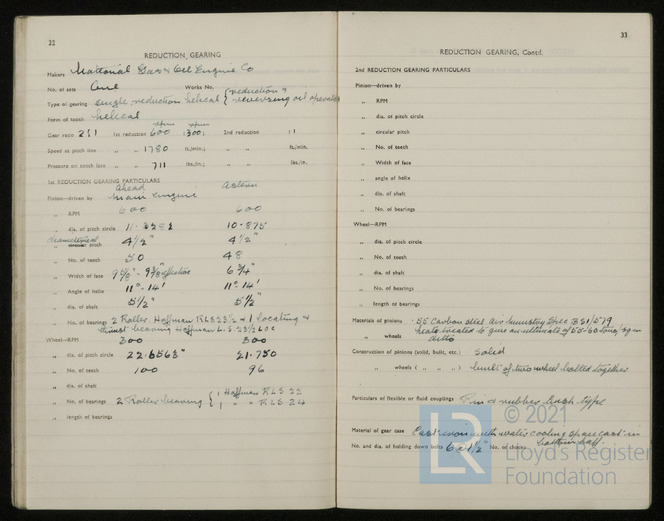 32
REDUCTION GEARING
Makers National Gas & Oil Engine Co
No. of sets One Works No.
Type of gearing single reduction helical { reduction & reversing oil operated
Form of teeth helical
Gear ratio 2:1 1st reduction 600 :300: 2nd reduction :1
Speed at pitch line „ „ 1780 ft./min.; „ „ ft./min.
Pressure on tooth face „ „ 711 lbs./in.; „ „ lbs./in.
1st REDUCTION GEARING PARTICULARS
Ahead Astern
Pinion—driven by Main Engine
„ RPM 600 600
„ dia. of pitch circle 11.3282 10.875
„ diametrical pitch 4½" 4½"
„ No. of teeth 50 48
„ Width of face effective 6¾"
„ Angle of helix 11° 14' 11° 14'
„ dia. of shaft 5½" 5½"
„ No. of bearings 2 Roller. Hoffman RLS 23½ & 1 locating &
thrust bearing Hoffman L.S. 23½
Wheel—RPM 300 300
„ dia. of pitch circle 22.6563" 21.750
„ No. of teeth 100 96
„ dia. of shaft
„ No. of bearings 2 Roller bearing { 1 Hoffman RLS 22
1 „ „ RLS 24
„ length of bearings
33
REDUCTION GEARING, Contd.
2nd REDUCTION GEARING PARTICULARS
Pinion—driven by
„ RPM
„ dia. of pitch circle
„ circular pitch
„ No. of teeth
„ Width of face
„ angle of helix
„ dia. of shaft
„ No. of bearings
Wheel—RPM
„ dia. of pitch circle
„ No. of teeth
„ dia. of shaft
„ No. of bearings
„ length of bearings
Materials of pinions .55 Carbon steel Air Ministry Spec
heat treated to give an ultimate of 55-60 tons/sq in
„ wheels ditto
Construction of pinions (solid, built, etc.) Solid
„ wheels ( „ „ „ ) built of two wheel bolted together
Particulars of flexible or fluid couplings Pin & rubber bush type
Material of gear case Cast iron with water cooling space cast in
bottom half.
No. and dia. of holding down bolts 6 @ 1½" No. of chocks
© 2021
LR
Lloyd's Register
Foundation